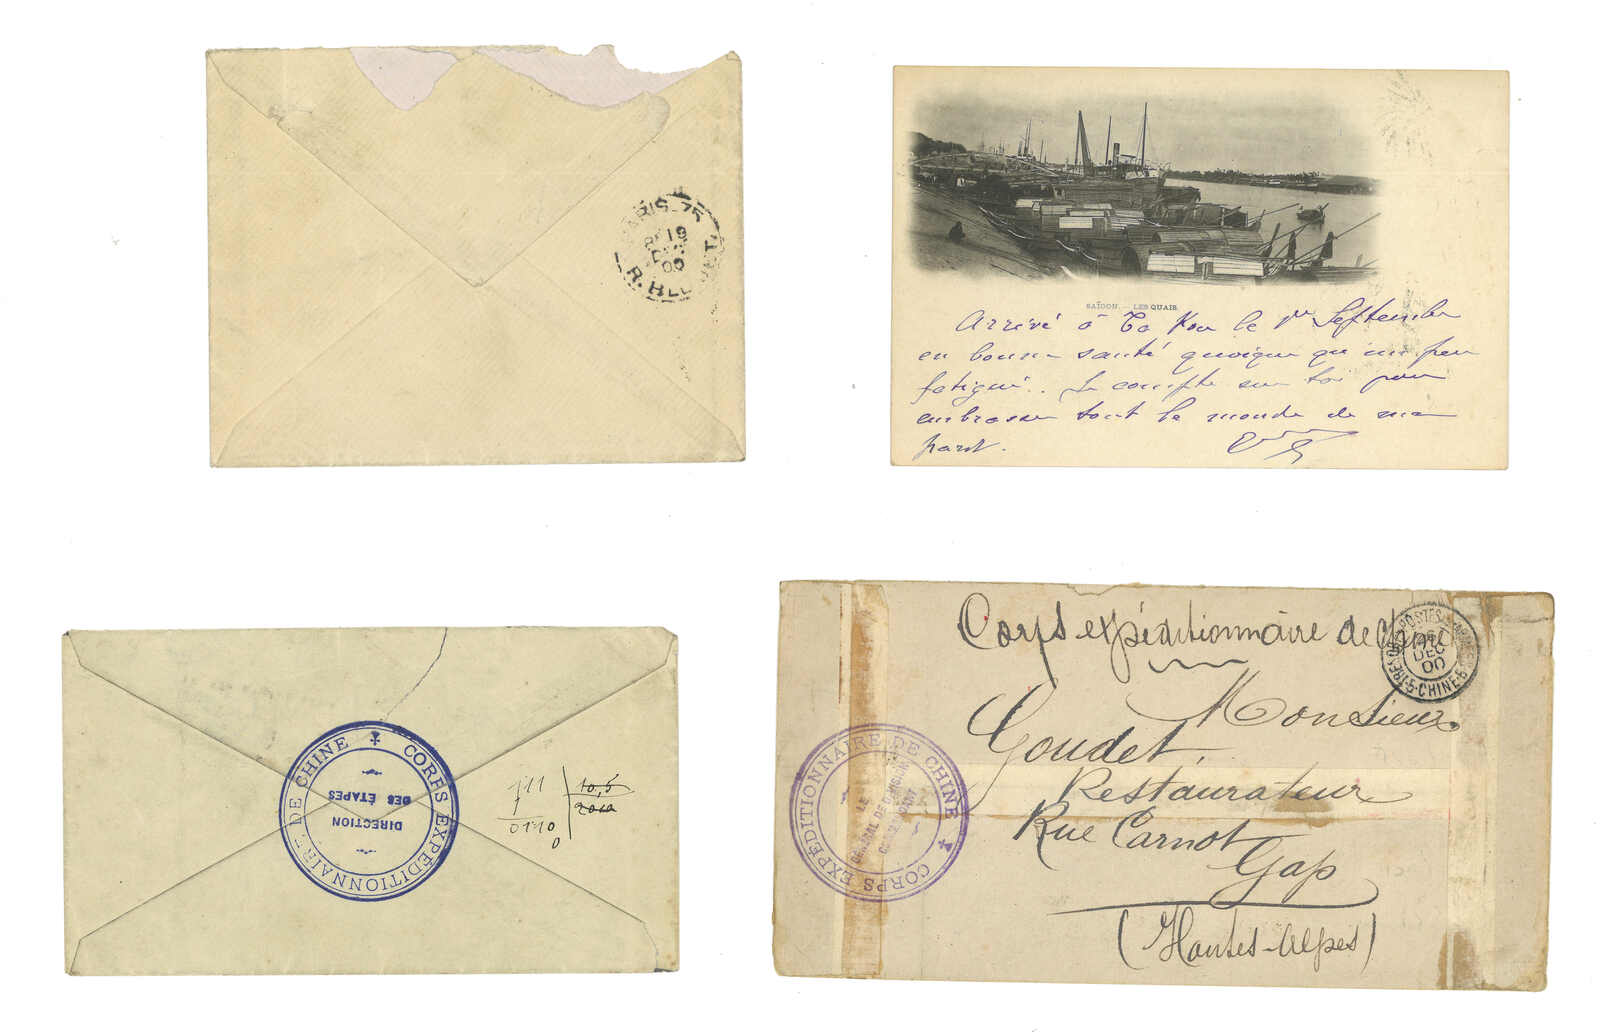 PARIS-75
19
00
SAÏGON. — LES QUAIS
Arrivé à Ta Kou le 1er Septembre
en bonne santé quoique qu'un peu
fatigué. Je compte sur toi pour
embrasser tout le monde de ma
part.
CORPS EXPÉDITIONNAIRE DE CHINE
DIRECTION
DES ÉTAPES
10,5
2010
Corps expéditionnaire de Chine
POSTES
DEC
00
5-CHINE-5
Monsieur
Goudet,
Restaurateur
Rue Carnot
Gap
(Hautes-Alpes)
CORPS EXPÉDITIONNAIRE DE CHINE
LE
GÉNÉRAL DE DIVISION
COMMANDANT